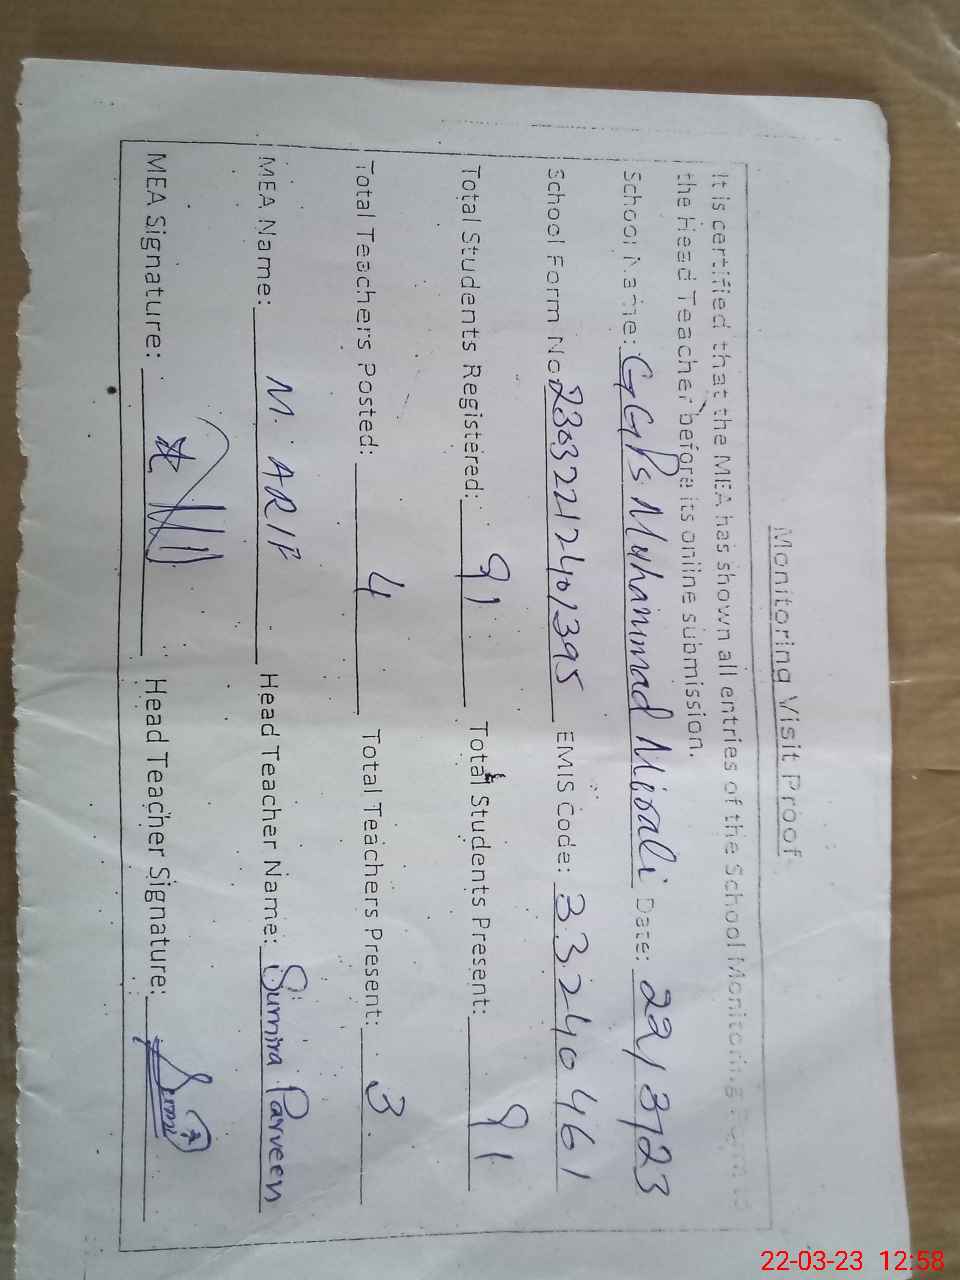 Monitoring Visit Proof
It is certified that the MEA has shown all entries of the School Monitoring Form to
the Head Teacher before its online submission.
School Name: GGPS Muhammad Mirali Date: 22/3/23
School Form No: 23032212401395 EMIS Code: 33240461
Total Students Registered: 91 Total Students Present: 91
Total Teachers Posted: 4 Total Teachers Present: 3
MEA Name: M. ARIF Head Teacher Name: Sumira Parveen
MEA Signature: Head Teacher Signature:
22-03-23 12:58